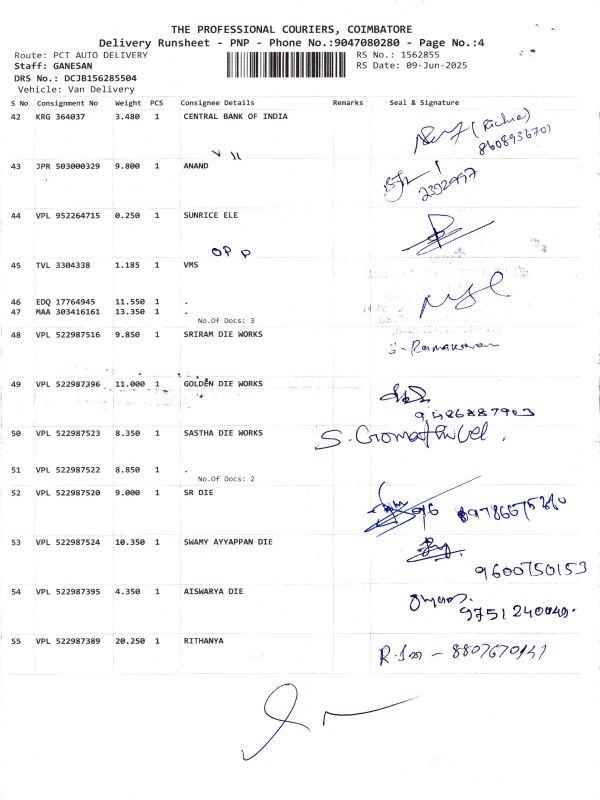 THE PROFESSIONAL COURIERS, COIMBATORE
Delivery Runsheet - PNP - Phone No.:9047080280 - Page No.:4
Route: PCT AUTO DELIVERY RS No.: 1562855
Staff: GANESAN RS Date: 09-Jun-2025
DRS No.: DCJB156285504
Vehicle: Van Delivery
S No Consignment No Weight PCS Consignee Details Remarks Seal & Signature
42 KRG 364037 3.480 1 CENTRAL BANK OF INDIA
(Richie)
8608936701
43 JPR 503000329 9.800 1 ANAND
2392997
44 VPL 952264715 0.250 1 SUNRICE ELE
OPP
45 TVL 3304338 1.185 1 VMS
46 EDQ 17764945 11.550 1 .
47 MAA 303416161 13.350 1 .
No.Of Docs: 3
48 VPL 522987516 9.850 1 SRIRAM DIE WORKS
49 VPL 522987396 11.000 1 GOLDEN DIE WORKS
9486887903
50 VPL 522987523 8.350 1 SASTHA DIE WORKS
51 VPL 522987522 8.850 1 .
No.Of Docs: 2
52 VPL 522987520 9.000 1 SR DIE
53 VPL 522987524 10.350 1 SWAMY AYYAPPAN DIE
9600750153
54 VPL 522987395 4.350 1 AISWARYA DIE
9751240049.
55 VPL 522987389 20.250 1 RITHANYA
8807670141